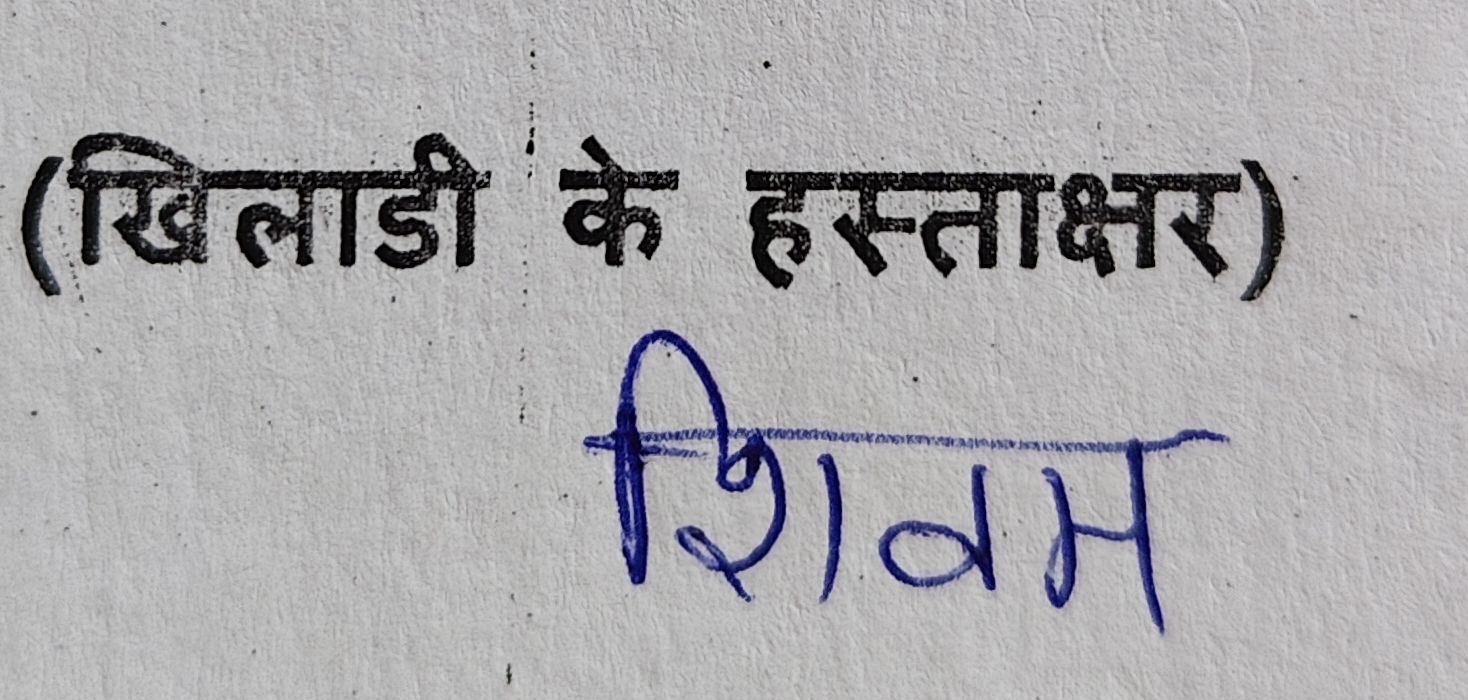 (खिलाडी के हस्ताक्षर)
शिवम